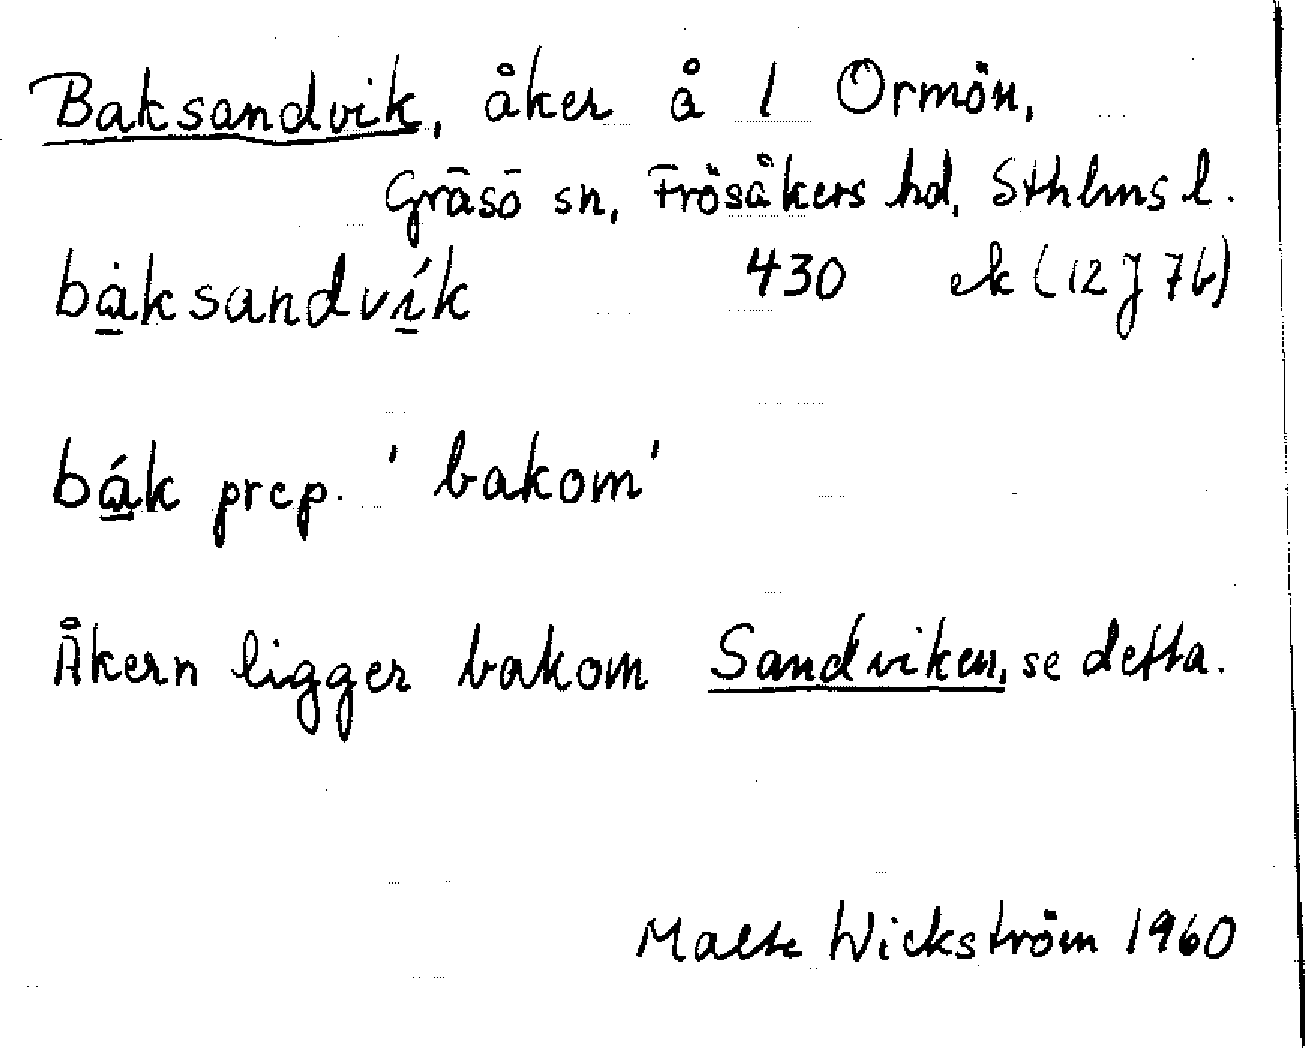 Baksandvik, åker å 1 Ormön,
Gräsö sn, Frösåkers hd, Sthlms l.
bàksandvík 430 ek (12J76)
bák prep. 'bakom'
Åkern ligger bakom Sandviken, se detta.
Malte Wickström 1960